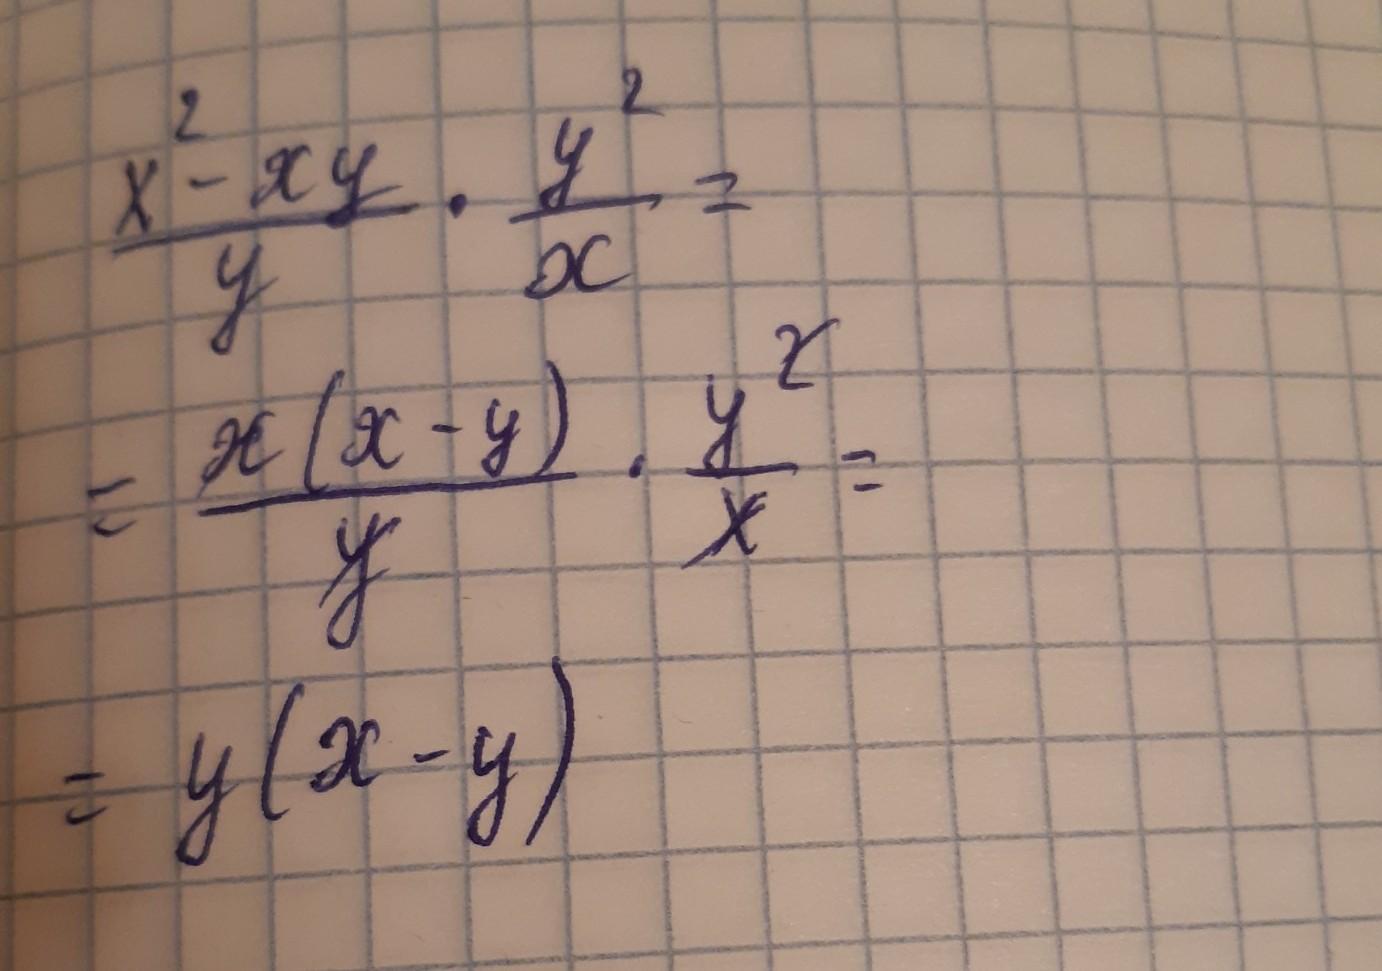 (x² - xy)/y · y²/x =
= x(x - y)/y · y²/x =
= y(x - y)